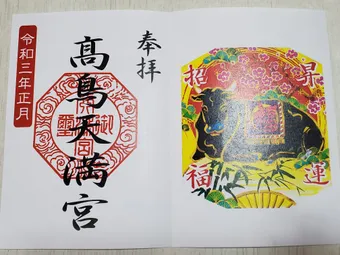 昇運
招福
奉拝
髙鳥天満宮
令和三年正月